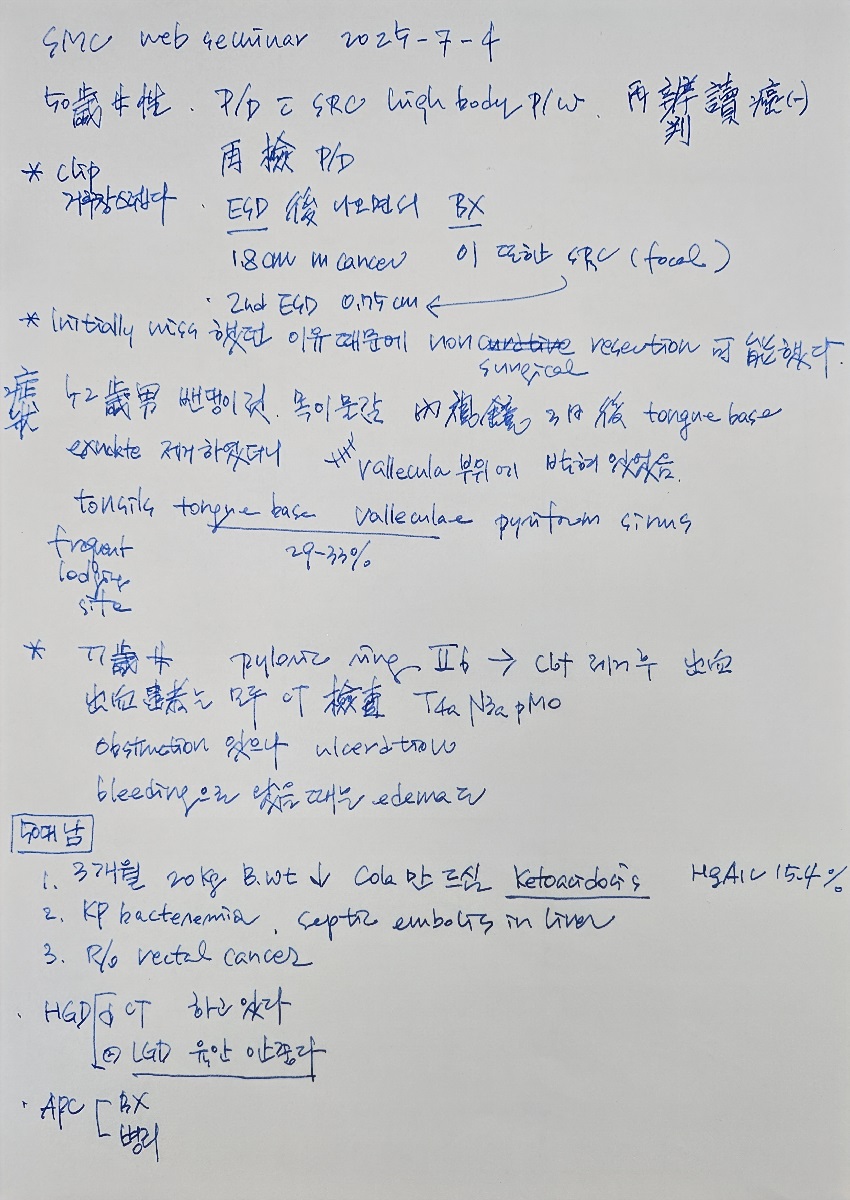 SMC web seminar 2025-7-4
50歲 女性. P/D c SRC high body P/W. 再 判讀 癌(-)
再 檢 P/D
* clip 거추장스럽다
ESD 後 나오면서 BX
1.8cm m cancer 이 또한 SRC (focal)
2nd ESD 0.75cm
* Initially miss 했던 이유 때문에 non surgical resection 可能했다.
症狀 42歲男 밴댕이젓. 목이물감 內視鏡 3日 後 tongue base
exudate 제거하였더니 vallecula 부위에 박혀 있었음.
tonsils tongue base valleculae pyriform sinus
frequent lodging site
29-33%
* 77歲 女 pyloric ring IIb → clot 제거 後 出血
出血患者는 모두 CT 檢査 T4aN3apM0
obstruction 있으나 ulceration
bleeding으로 있을 때는 edema도
50대 남
1. 3개월 20kg B.wt ↓ Cola 만 드심 Ketoacidosis HgA1C 15.4%
2. KP bacteremia, septic embolis in liver
3. R/o rectal cancer
HGD CT 하고 있다
LGD 육안 안좋다
APC BX
병리